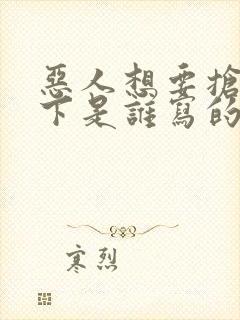 惡人想要搶
下是誰寫的
寒烈